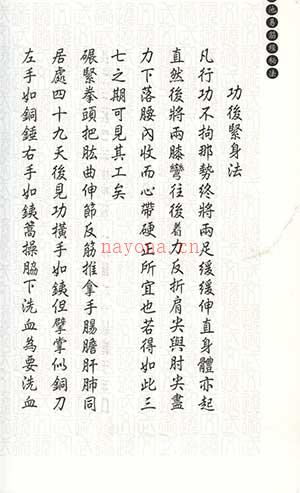 易筋經秘法
功後緊身法
凡行功不拘那勢終將兩足緩緩伸直身體亦起
直然後將兩膝彎往後着力反折肩尖與肘尖盡
力下落腰內收而心帶硬正所宜也若得如此三
七之期可見其工矣
碾緊拳頭把肱曲伸節反筋推拿手腸膽肝肺同
居處四十九天後見功橫手如銕但擘掌似銅刀
左手如銅錘右手如銕蒿操脇下洗血為要洗血
nayona.cn